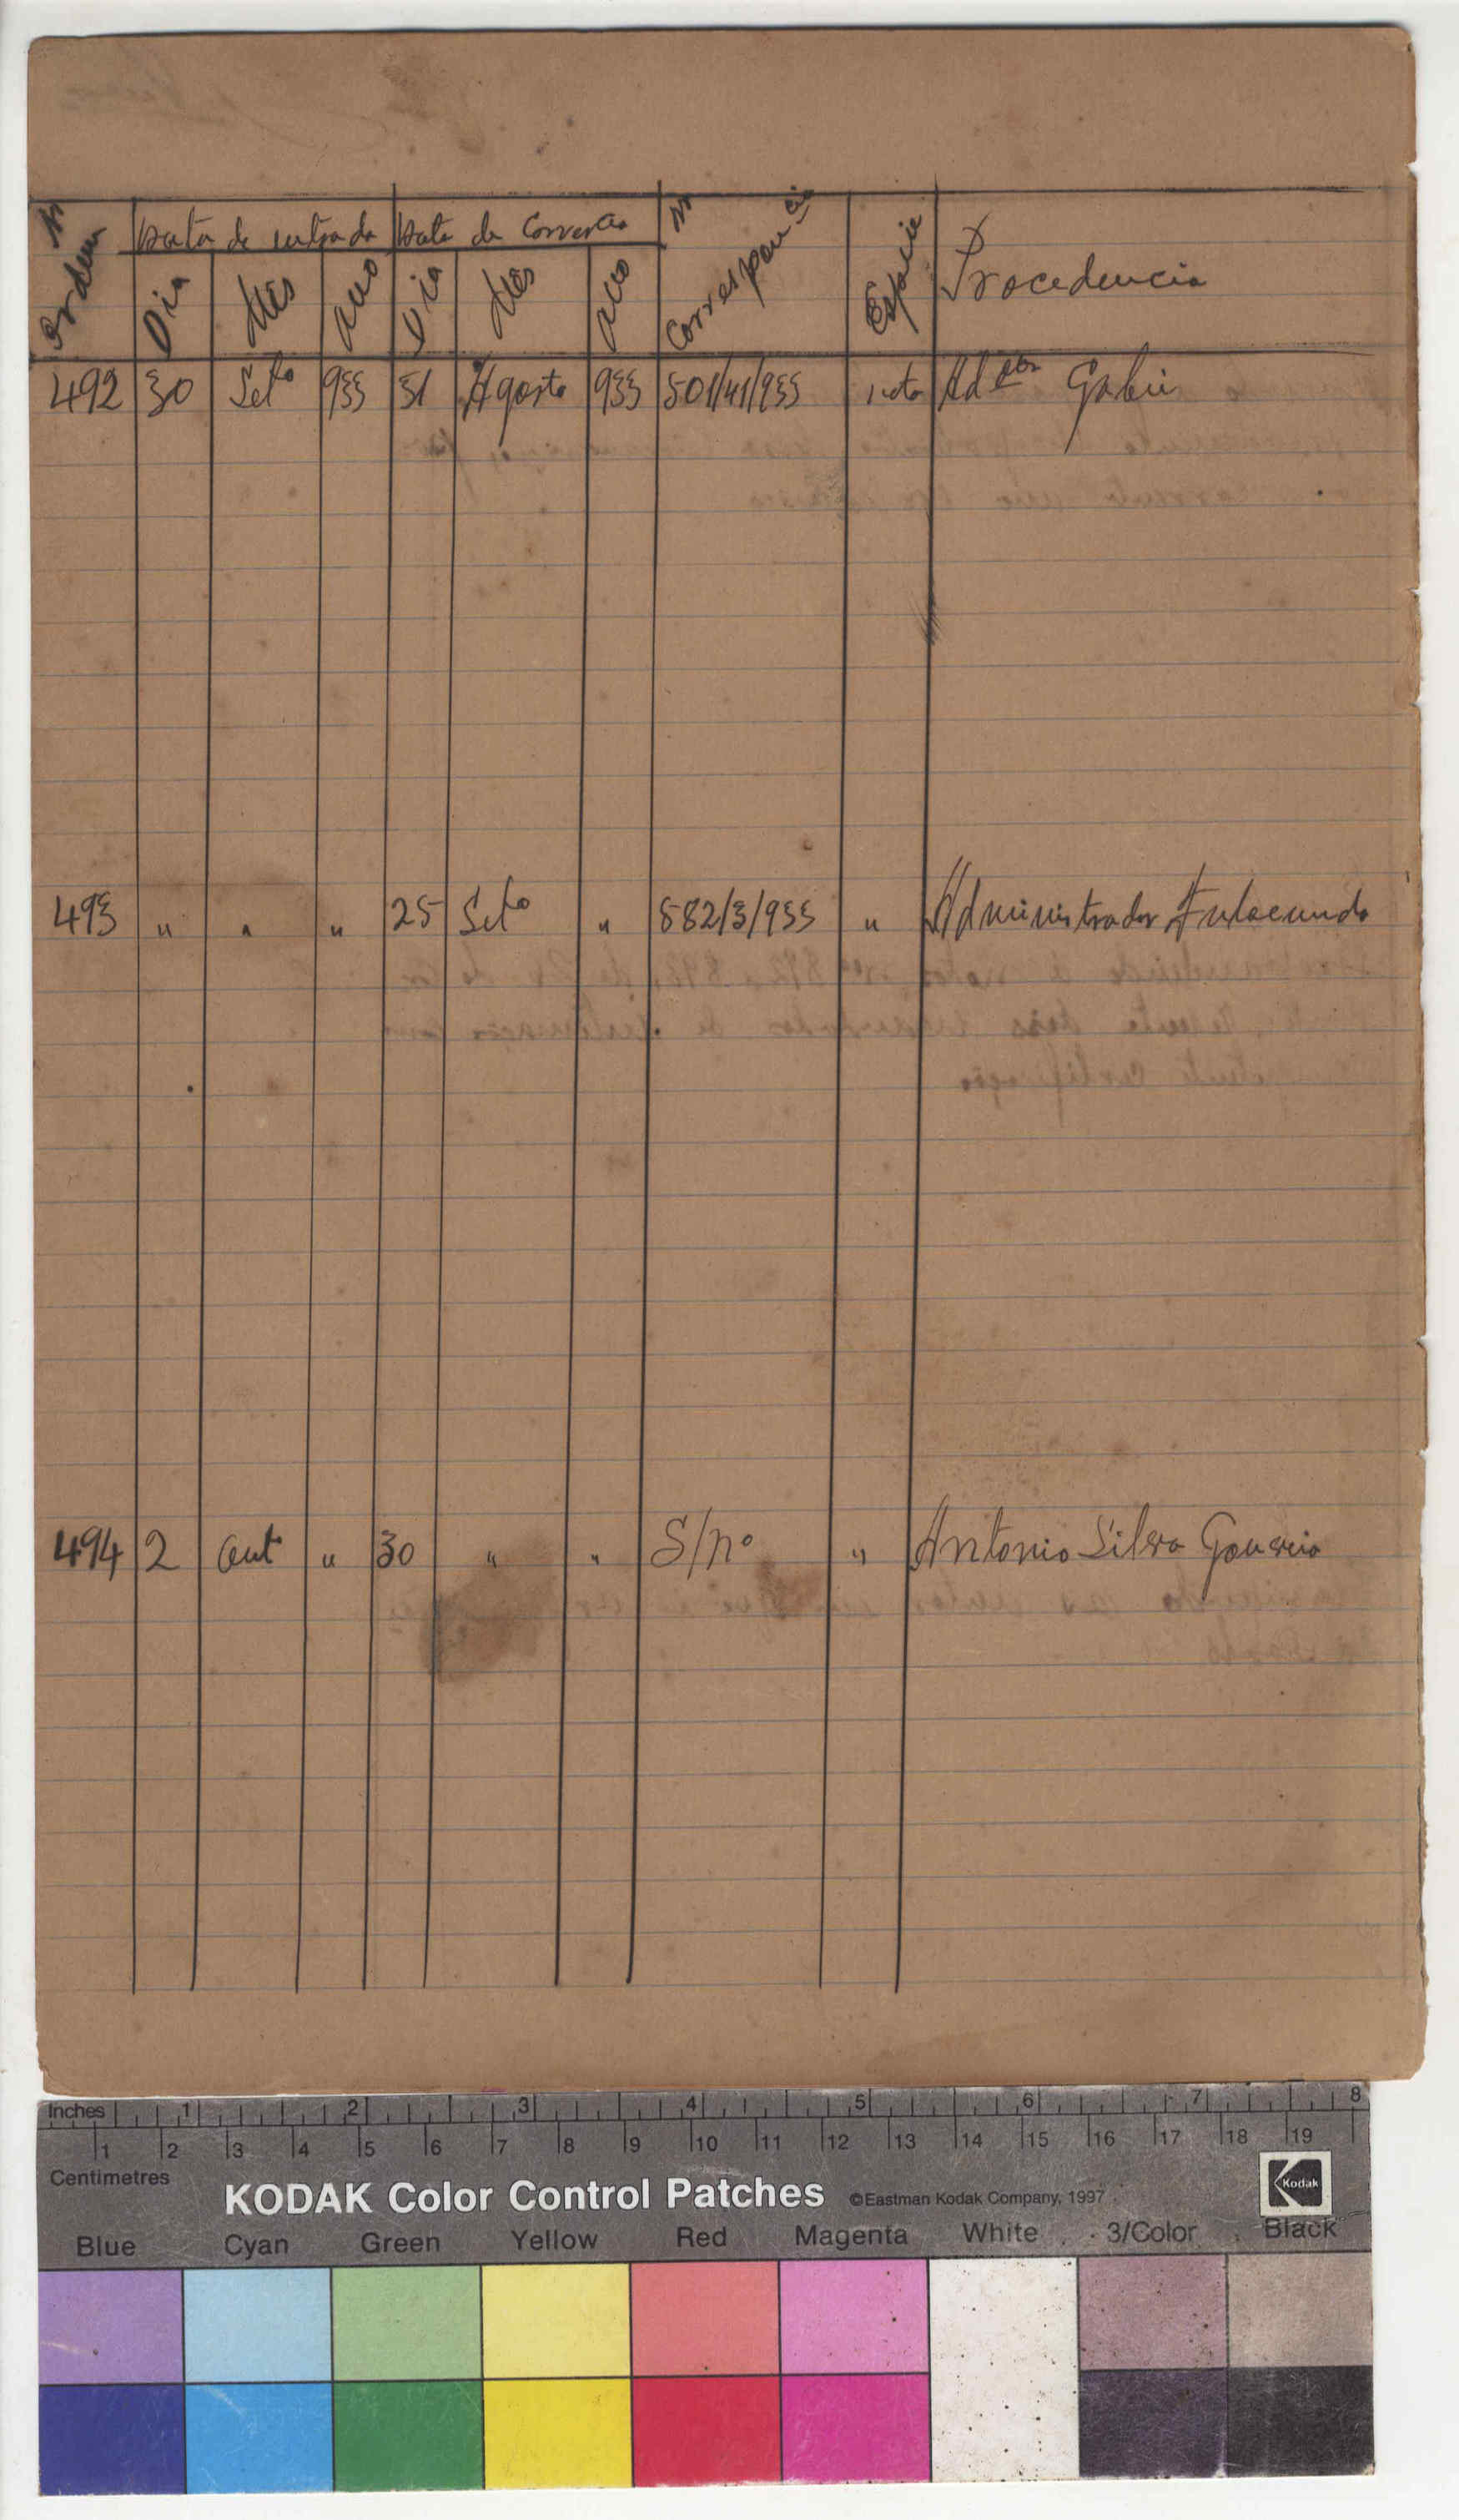 Nº Ordem | Data de entrada | Data de Corresª | Nº Correspondencia | Especie | Procedencia
Dia | Mês | Ano | Dia | Mês | Ano
492 | 30 | Setº | 955 | 31 | Agosto | 955 | 501/41/955 | nota | Adºr Gabú
493 | " | " | " | 25 | Setº | " | 882/3/955 | " | Administrador Fulacunda
494 | 2 | Out | " | 30 | " | " | S/nº | " | Antonio Silva Gouveia
Inches 1 2 3 4 5 6 7 8
1 2 3 4 5 6 7 8 9 10 11 12 13 14 15 16 17 18 19
Centimetres
KODAK Color Control Patches ©Eastman Kodak Company, 1997 Kodak
Blue Cyan Green Yellow Red Magenta White 3/Color Black